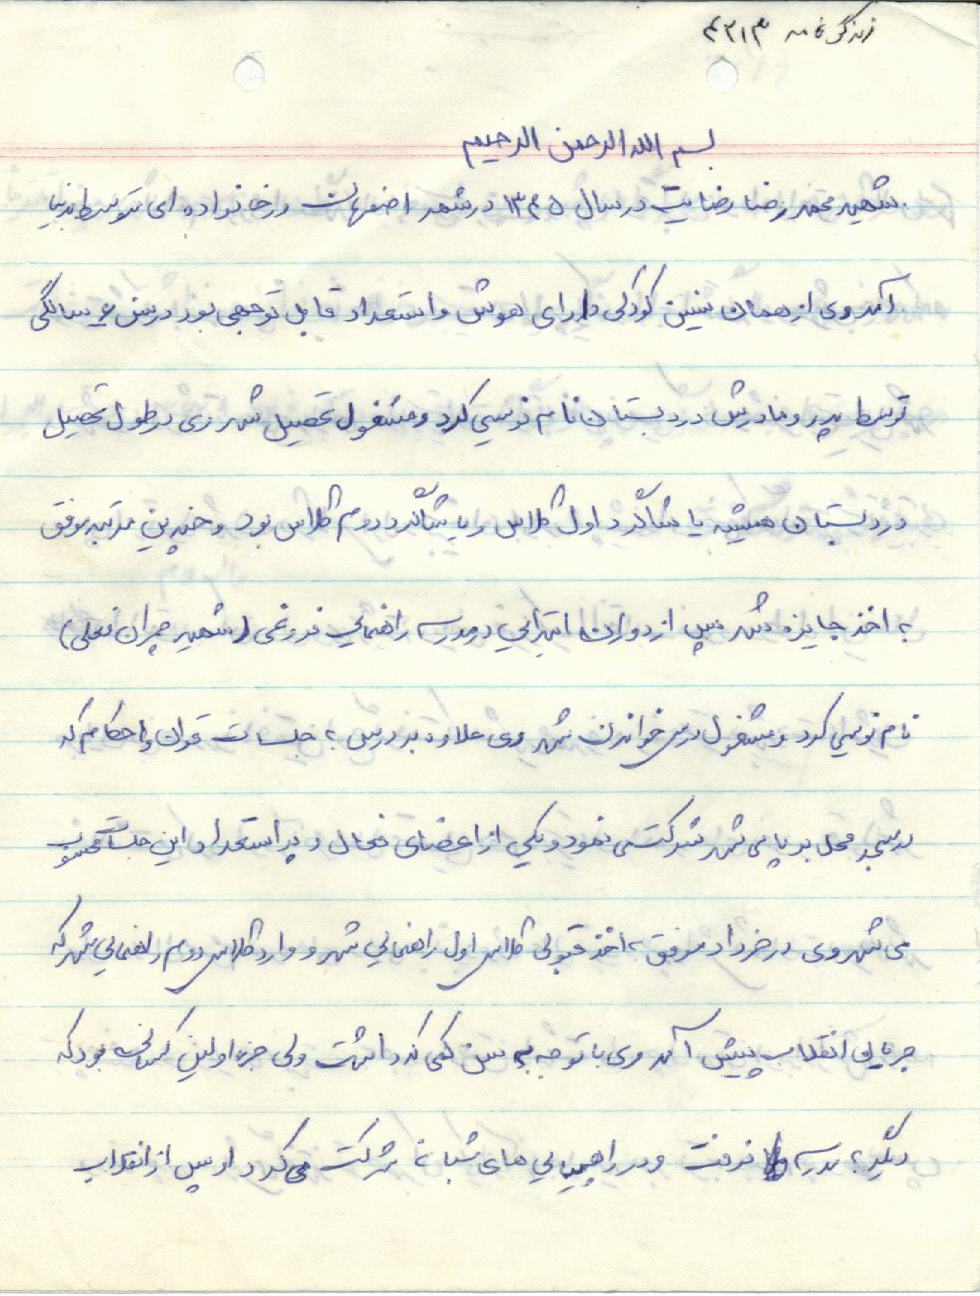 زندگی نامه ۴۲۱۳
بسم الله الرحمن الرحیم
شهید محمد رضا رضایت در سال ۱۳۴۵ در شهر اصفهان در خانواده ای متوسط بدنیا
آمد وی از همان سنین کودکی دارای هوش و استعداد قابل توجهی بود در سن ۶ سالگی
توسط پدر و مادرش در دبستان نام نویسی کرد و مشغول تحصیل شد وی در طول تحصیل
در دبستان همیشه یا شاگرد اول کلاس و یا شاگرد دوم کلاس بود و چندین مرتبه موفق
به اخذ جایزه شد سپس از دوران ابتدایی در مدرسه راهنمایی فروغی (شهید چمران فعلی)
نام نویسی کرد و مشغول درس خواندن شد وی علاوه بر درس به جلسات قرآن و احکام که
در مسجد محل بر پا می شد شرکت می نمود و یکی از اعضای فعال و پر استعداد این جلسات محسوب
می شد وی در خرداد موفق به اخذ قبولی کلاس اول راهنمایی شد و وارد کلاس دوم راهنمایی شد که
جریان انقلاب پیش آمد وی با توجه به سن کمی که داشت ولی جزء اولین کسانی بود که
دیگر به مدرسه نرفت و در راهپیمایی های شبانه شرکت می کرد او پس از انقلاب